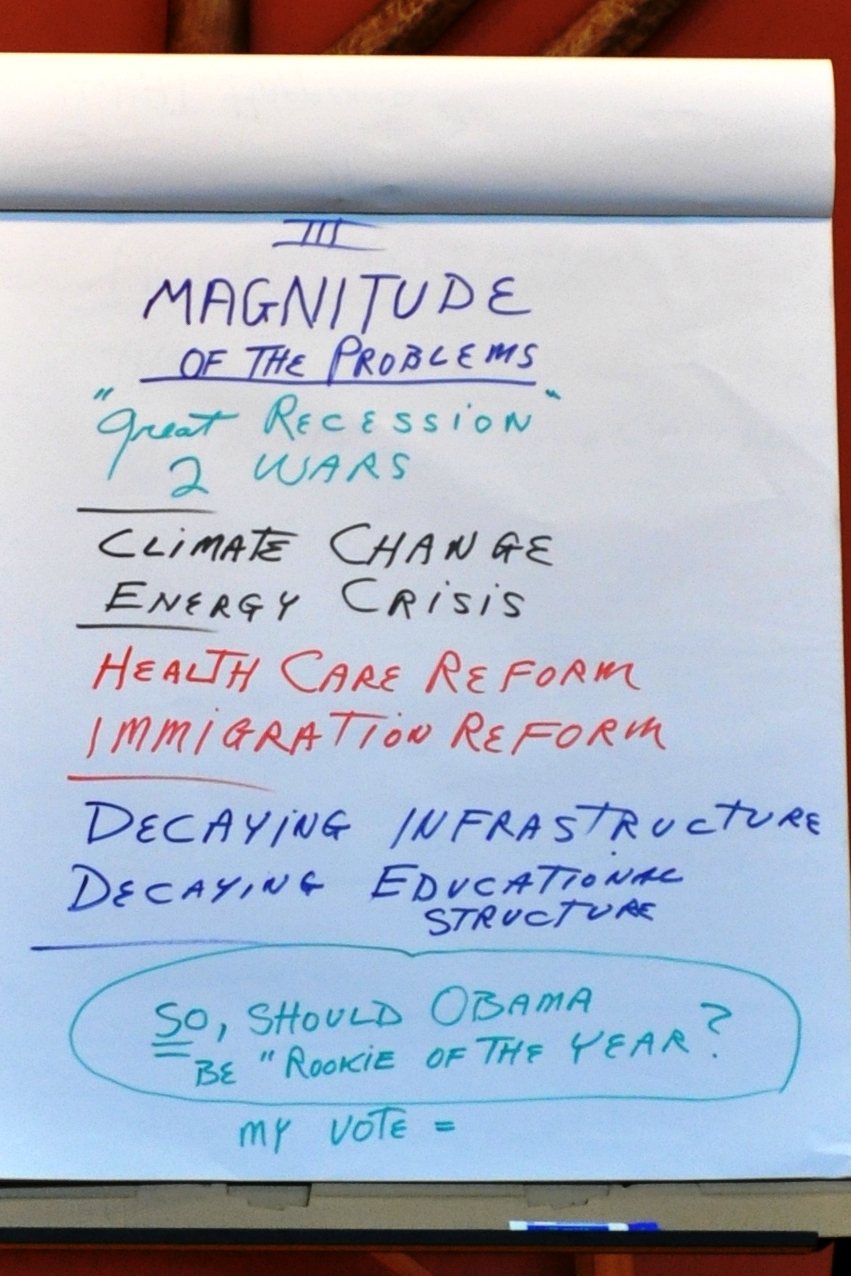 III
MAGNITUDE
OF THE PROBLEMS
"Great RECESSION"
2 WARS
CLIMATE CHANGE
ENERGY CRISIS
HEALTH CARE REFORM
IMMIGRATION REFORM
DECAYING INFRASTRUCTURE
DECAYING EDUCATIONAL
STRUCTURE
SO, SHOULD OBAMA
BE "ROOKIE OF THE YEAR?
MY VOTE =